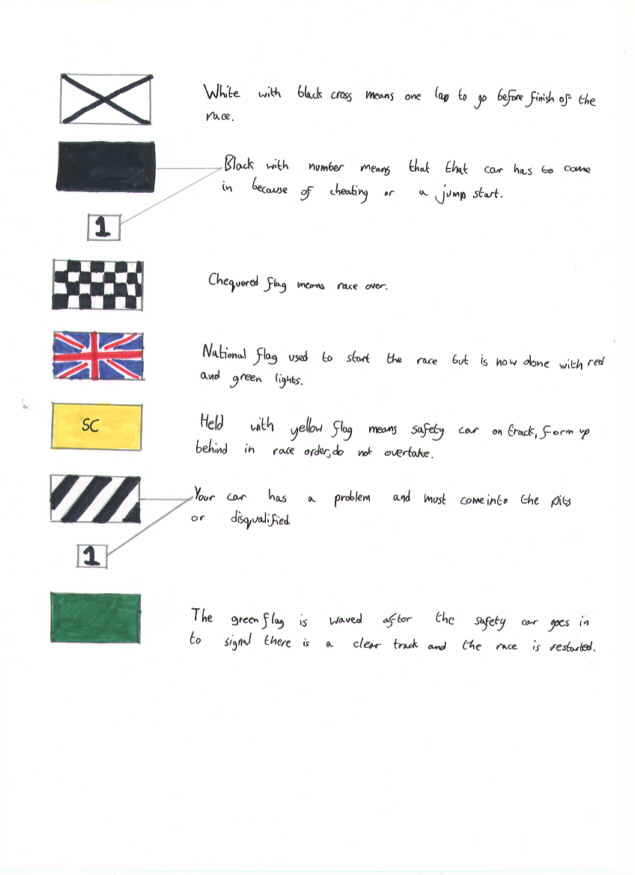 White with black cross means one lap to go before finish of the
race.
Black with number means that that car has to come
in because of cheating or a jump start.
1
Chequered flag means race over.
National flag used to start the race but is now done with red
and green lights.
SC
Held with yellow flag means safety car on track, form up
behind in race order, do not overtake.
Your car has a problem and must come into the pits
or disqualified
1
The green flag is waved after the safety car goes in
to signal there is a clear track and the race is restarted.